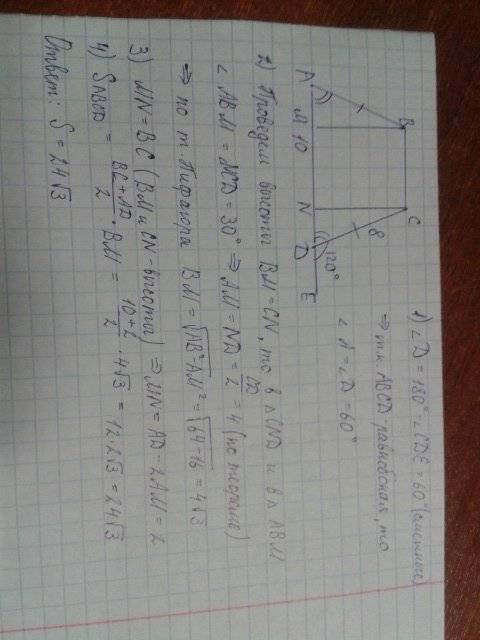 A M 10 N D E
B C 8 120°
1) ∠D = 180° - ∠CDE = 60° (смежные)
⇒ т.к. ABCD равнобокая, то
∠A = ∠D = 60°
2) Проведем высоты BM = CN, то в ΔCND и в ΔABM
∠ABM = NCD = 30° ⇒ AM = ND = CD/2 = 4 (по теореме)
⇒ по т Пифагора BM = √AB² - AM² = √64 - 16 = 4√3
3) MN = BC (BM и CN - высоты) ⇒ MN = AD - 2AM = 2
4) SABCD = BC + AD / 2 · BM = 10 + 2 / 2 · 4√3 = 12 · 2√3 = 24√3
Ответ: S = 24√3